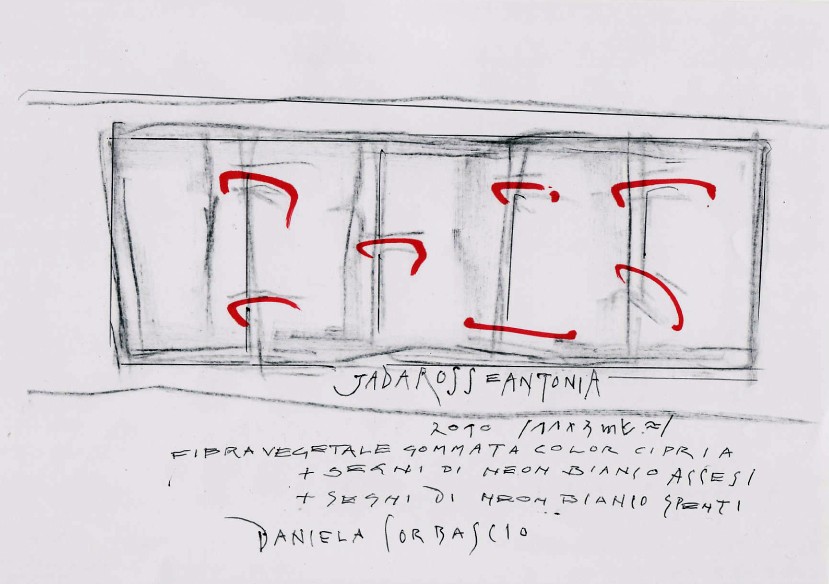 JADAROSSEANTONIA
2010 /11x3 mt. ≈/
FIBRA VEGETALE GOMMATA COLOR CIPRIA
+ SEGNI DI NEON BIANCO ACCESI
+ SEGNI DI NEON BIANCO SPENTI
DANIELA CORBASCIO